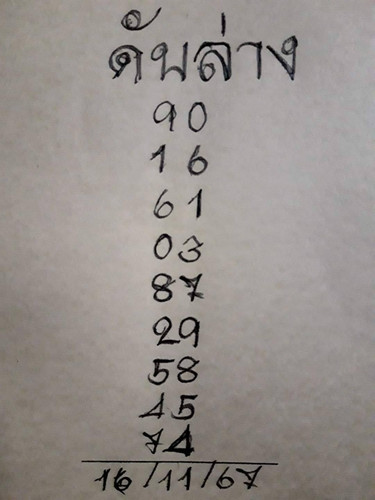 ดับล่าง
90
16
61
03
87
29
58
45
74
16/11/67